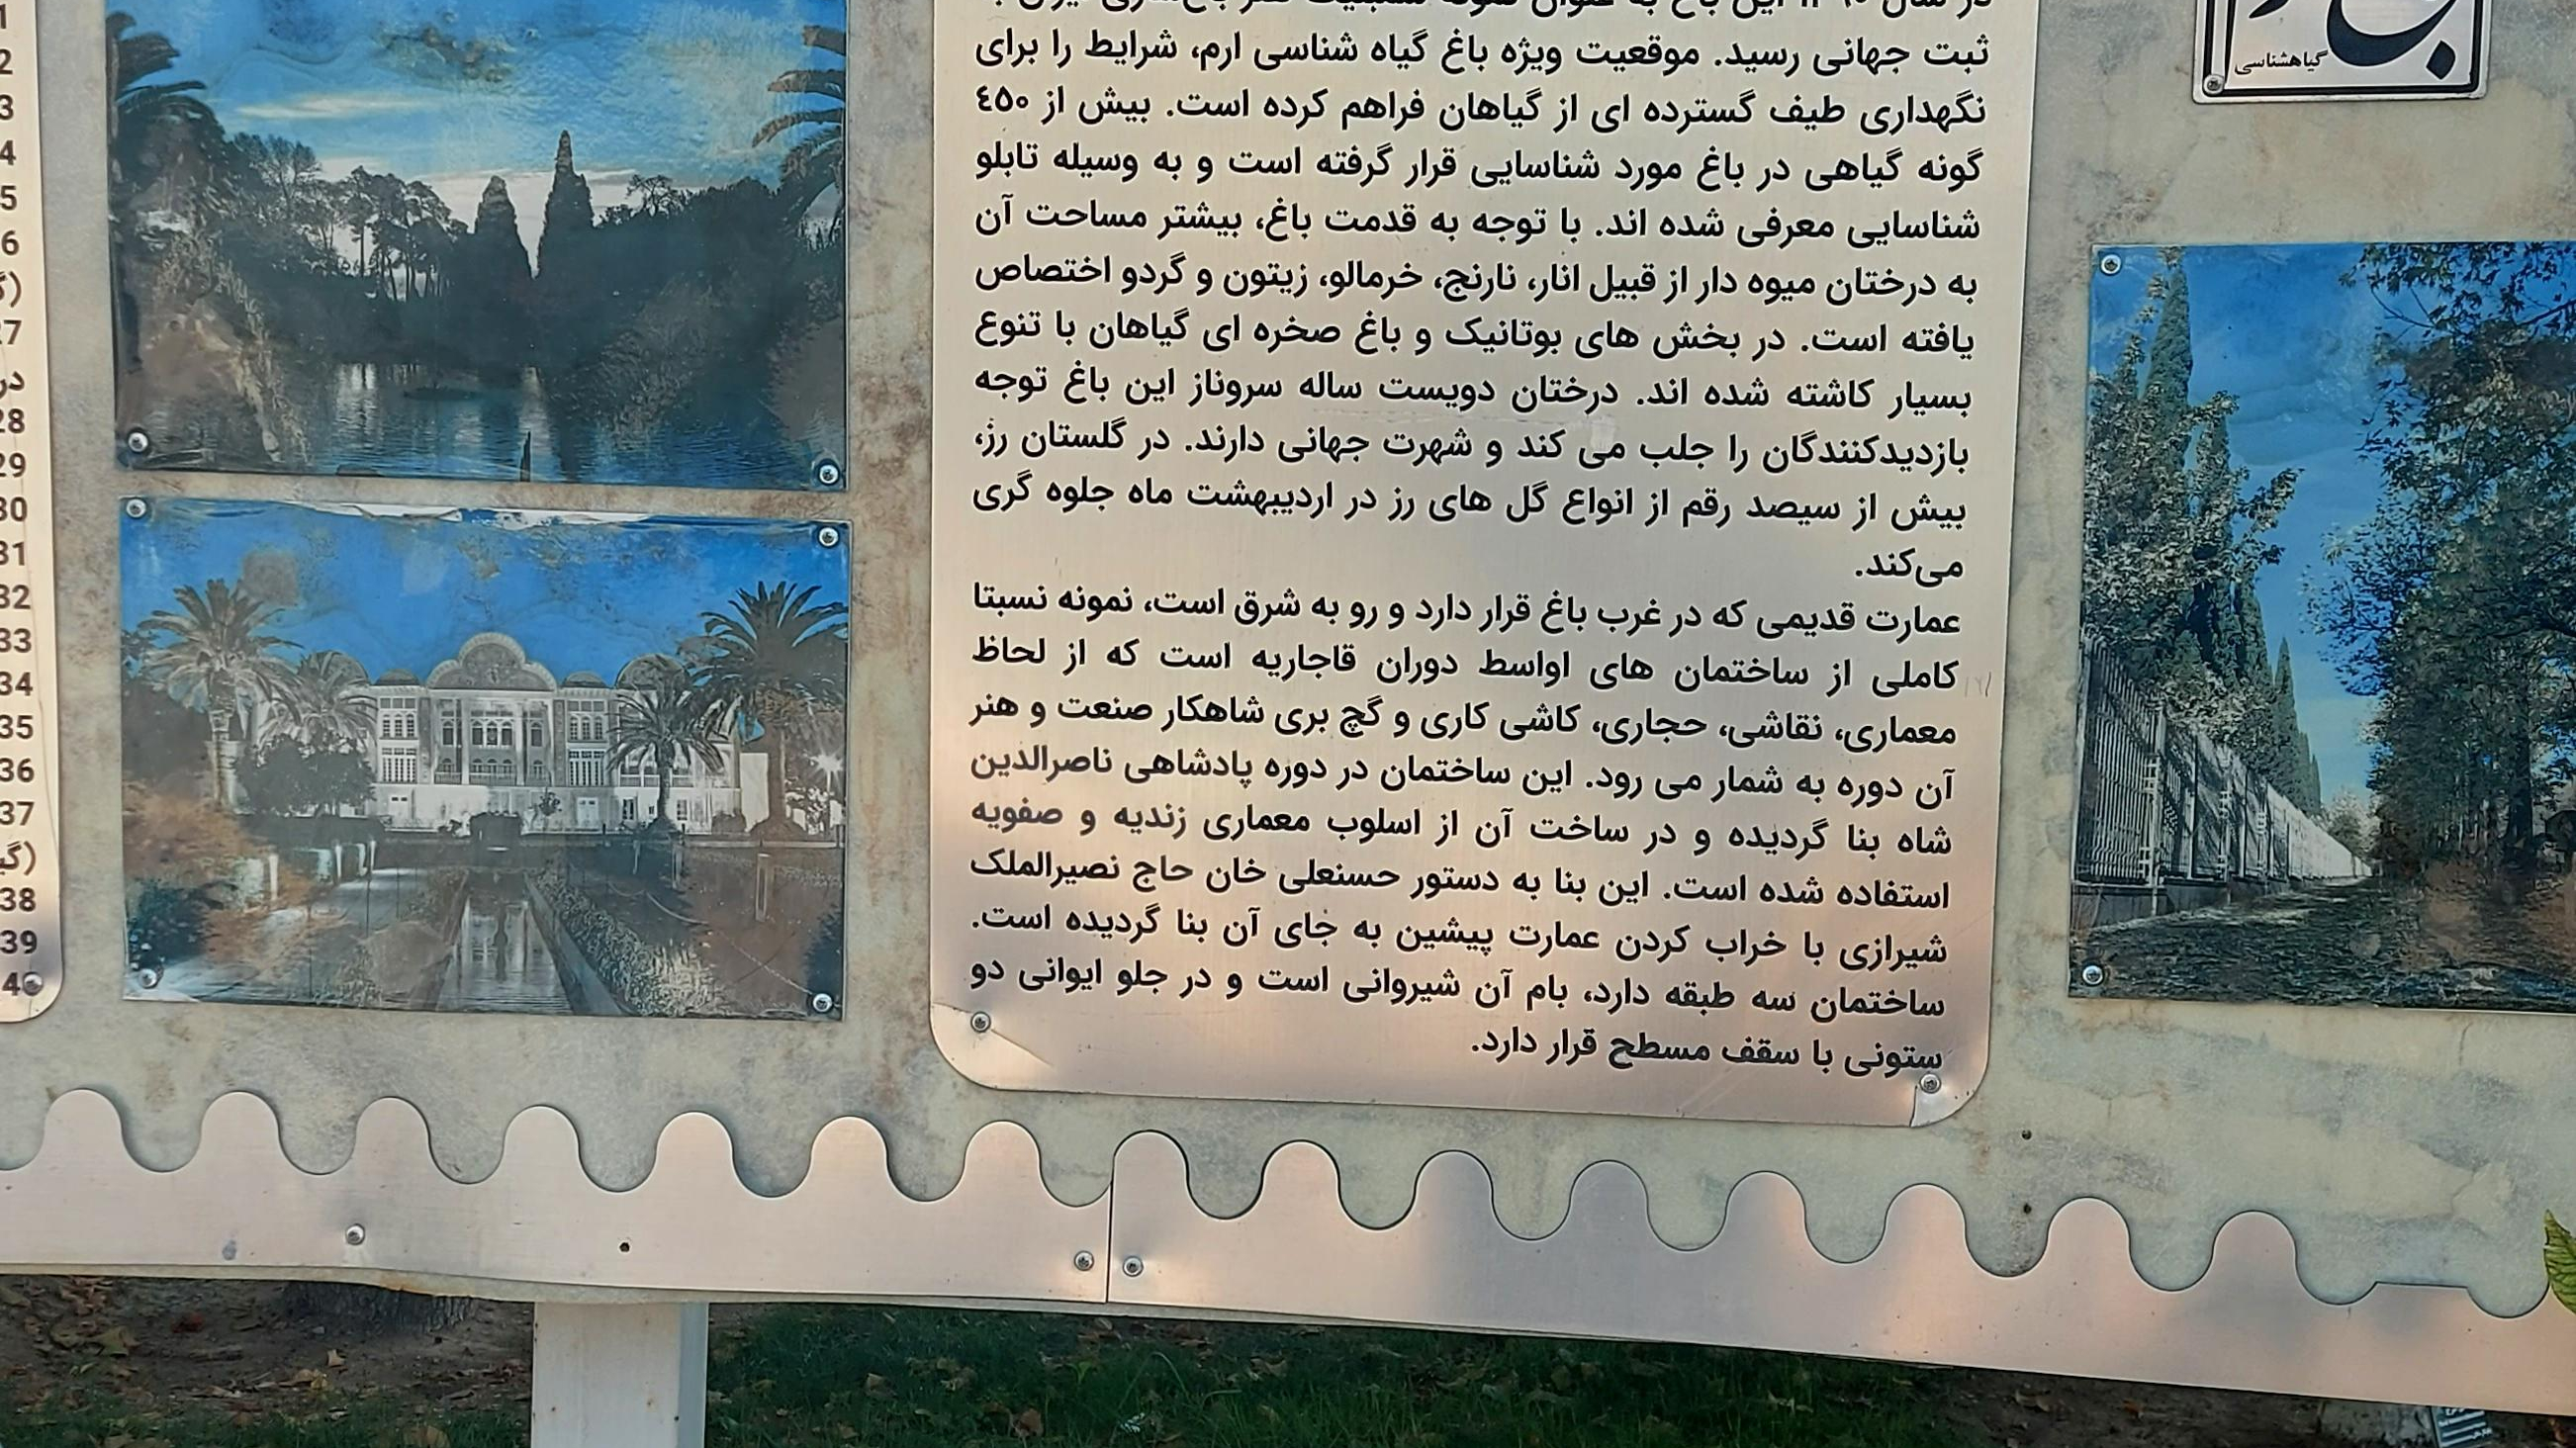 ثبت جهانی رسید. موقعیت ویژه باغ گیاه شناسی ارم، شرایط را برای
نگهداری طیف گسترده ای از گیاهان فراهم کرده است. بیش از ٤٥٠
گونه گیاهی در باغ مورد شناسایی قرار گرفته است و به وسیله تابلو
شناسایی معرفی شده اند. با توجه به قدمت باغ، بیشتر مساحت آن
به درختان میوه دار از قبیل انار، نارنج، خرمالو، زیتون و گردو اختصاص
یافته است. در بخش های بوتانیک و باغ صخره ای گیاهان با تنوع
بسیار کاشته شده اند. درختان دویست ساله سروناز این باغ توجه
بازدیدکنندگان را جلب می کند و شهرت جهانی دارند. در گلستان رز،
بیش از سیصد رقم از انواع گل های رز در اردیبهشت ماه جلوه گری
می‌کند.
عمارت قدیمی که در غرب باغ قرار دارد و رو به شرق است، نمونه نسبتا
کاملی از ساختمان های اواسط دوران قاجاریه است که از لحاظ
معماری، نقاشی، حجاری، کاشی کاری و گچ بری شاهکار صنعت و هنر
آن دوره به شمار می رود. این ساختمان در دوره پادشاهی ناصرالدین
شاه بنا گردیده و در ساخت آن از اسلوب معماری زندیه و صفویه
استفاده شده است. این بنا به دستور حسنعلی خان حاج نصیرالملک
شیرازی با خراب کردن عمارت پیشین به جای آن بنا گردیده است.
ساختمان سه طبقه دارد، بام آن شیروانی است و در جلو ایوانی دو
ستونی با سقف مسطح قرار دارد.
گیاهشناسی
28
29
30
31
32
33
34
35
36
37
38
39